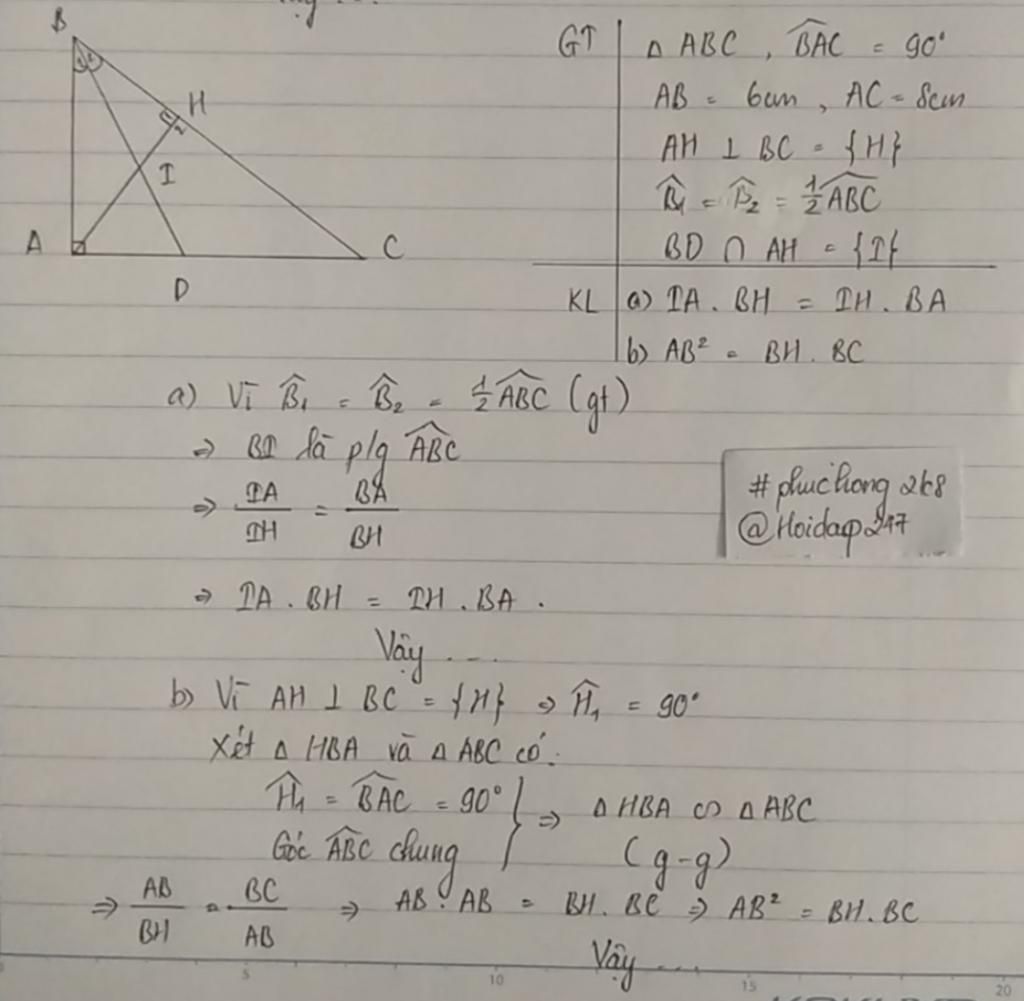 B
H
I
A
C
D
GT
Δ ABC , BAC = 90°
AB = 6cm , AC = 8cm
AH ⊥ BC = {H}
B̂₁ = B̂₂ = 1/2 ABC
BD ∩ AH = {I}
KL a) IA . BH = IH . BA
b) AB² = BH . BC
a) Vì B̂₁ = B̂₂ = 1/2 ABC (gt)
⇒ BI là p/g ABC
⇒ IA/IH = BA/BH
⇒ IA . BH = IH . BA .
Vậy ...
#phuchong2k8
@Hoidap247
b) Vì AH ⊥ BC = {H} ⇒ Ĥ₁ = 90°
Xét Δ HBA và Δ ABC có:
Ĥ₁ = BAC = 90°
Góc ABC chung
} ⇒ Δ HBA ∽ Δ ABC
(g-g)
⇒ AB/BH = BC/AB ⇒ AB . AB = BH . BC ⇒ AB² = BH . BC
Vậy ....
5 10 15 20